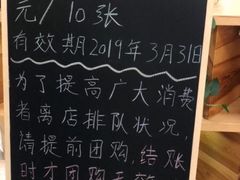 元/10张
有效期2019年3月31日
为了提高广大消费
者离店排队状况,
请提前团购,结账
时才团购无效